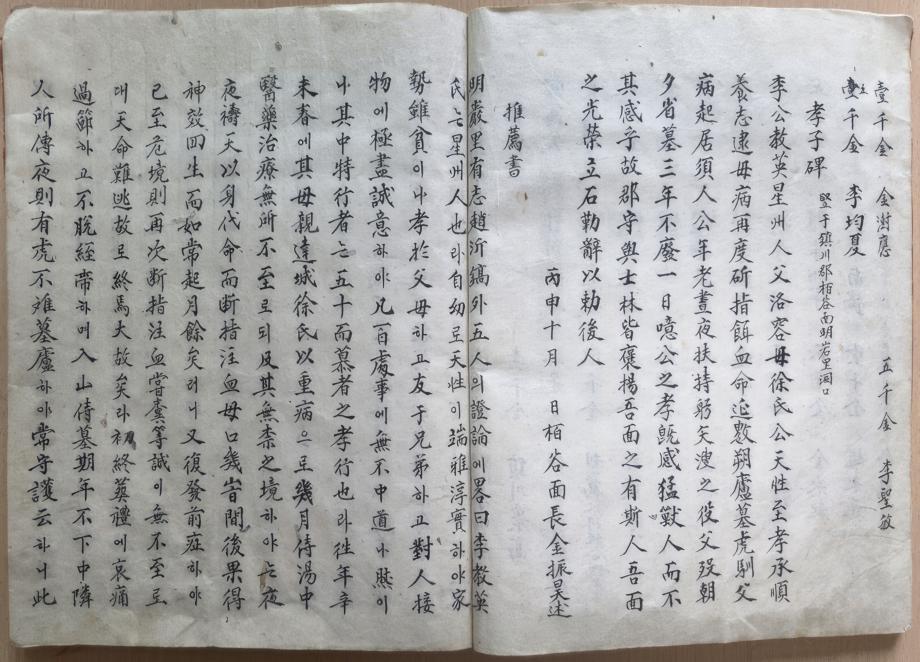 壹千金 金澍應 五千金 李聖敏
壹千金 李均夏
孝子碑 竪于鎮川郡栢谷面明岩里洞口
李公教英星州人父洛容母徐氏公天性至孝承順
養志逮母病再度斫指餌血命延數朔廬墓虎馴父
病起居須人公年老晝夜扶持躬矢溲之役父歿朝
夕省墓三年不廢一日噫公之孝旣感猛獸人而不
其感乎故郡守與士林皆襃揚吾面之有斯人吾面
之光榮立石勒辭以勅後人
丙申十月 日栢谷面長金振昊述
推薦書
明巖里有志趙沂鎬外五人의證論에畧曰李教英
氏는星州人也라自幼로天性이端雅淳實하야家
勢雖貧이나孝於父母하고友于兄弟하고對人接
物에極盡誠意하야凡百處事에無不中道나然이
나其中特行者는五十而慕者之孝行也라徃年辛
未春에其母親達城徐氏以重病으로幾月侍湯中
醫藥治療無所不至로되及其無柰之境하야는夜
夜禱天以身代命而断指注血母口幾旹間後果得
神效回生而如常起月餘矣러니又復發前症하야
已至危境則再次断指注血嘗糞等誠이無不至로
대天命難逃故로終焉大故矣라初終葬禮에哀痛
過節하고不脫絰帶하며入山侍墓期年不下中隣
人所傳夜則有虎不难墓廬하야常守護云하니此